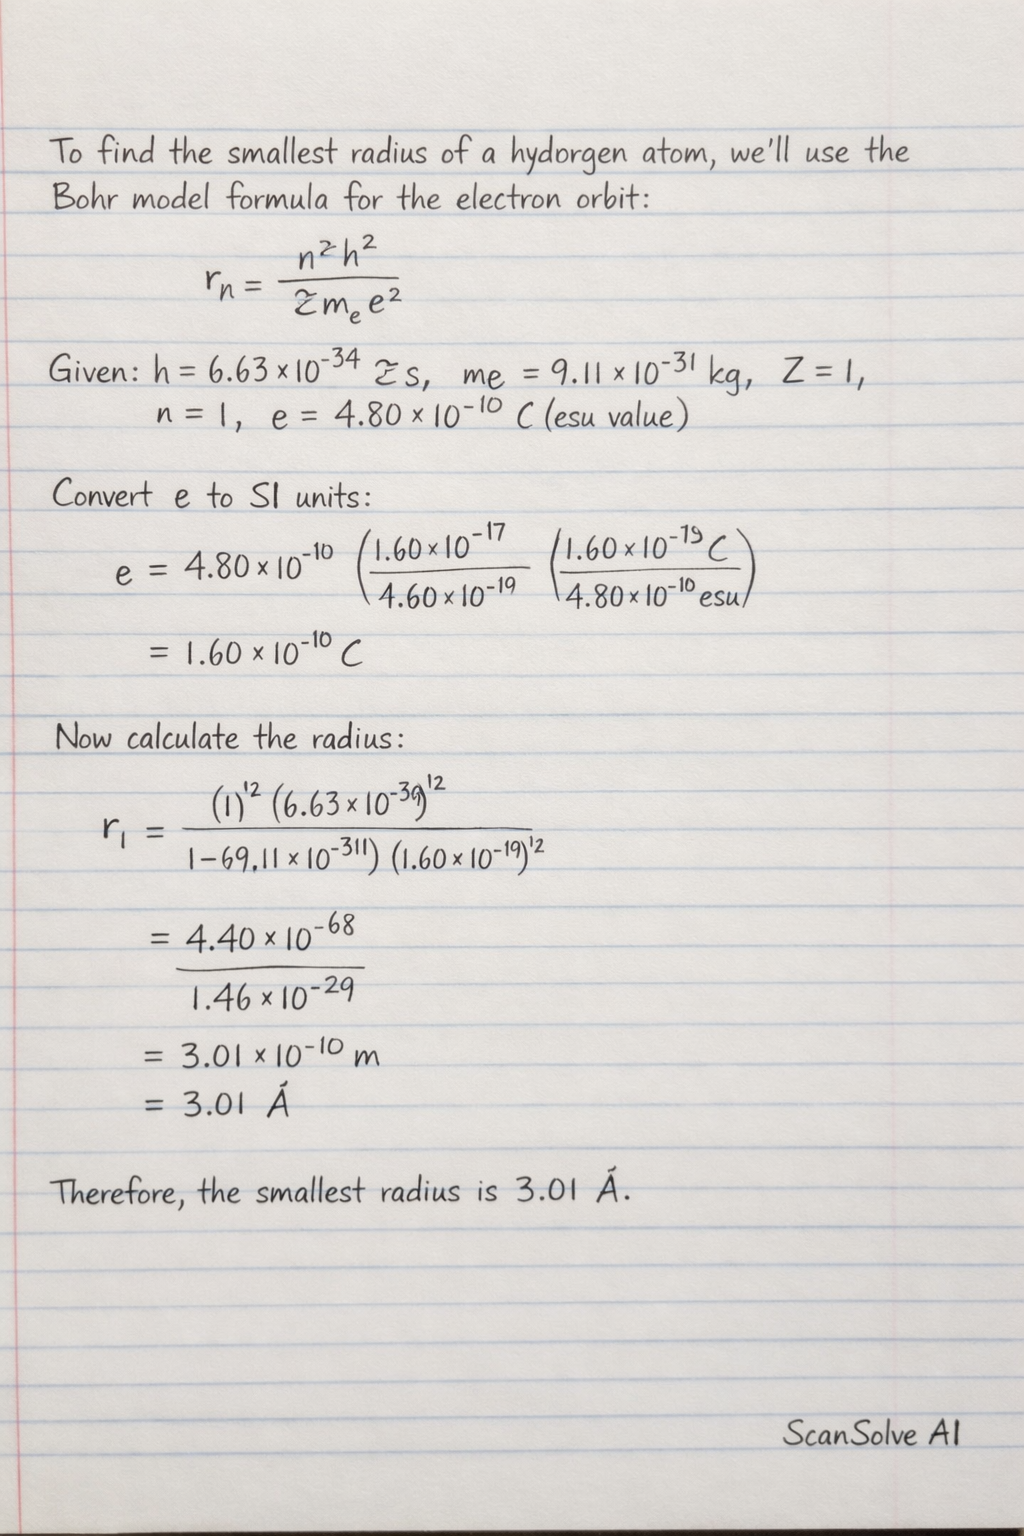 To find the smallest radius of a hydorgen atom, we'll use the
Bohr model formula for the electron orbit:
rₙ = n²h² / Zmₑe²
Given: h = 6.63 × 10⁻³⁴ Z s, me = 9.11 × 10⁻³¹ kg, Z = 1,
n = 1, e = 4.80 × 10⁻¹⁰ C (esu value)
Convert e to SI units:
e = 4.80 × 10⁻¹⁰ (1.60 × 10⁻¹⁷ / 4.60 × 10⁻¹⁹ (1.60 × 10⁻¹⁹ C / 4.80 × 10⁻¹⁰ esu)
= 1.60 × 10⁻¹⁰ C
Now calculate the radius:
r₁ = (1)'² (6.63 × 10⁻³⁹)'² / 1 − 69.11 × 10⁻³¹¹) (1.60 × 10⁻¹⁹)'²
= 4.40 × 10⁻⁶⁸ / 1.46 × 10⁻²⁹
= 3.01 × 10⁻¹⁰ m
= 3.01 Á
Therefore, the smallest radius is 3.01 Á.
ScanSolve AI